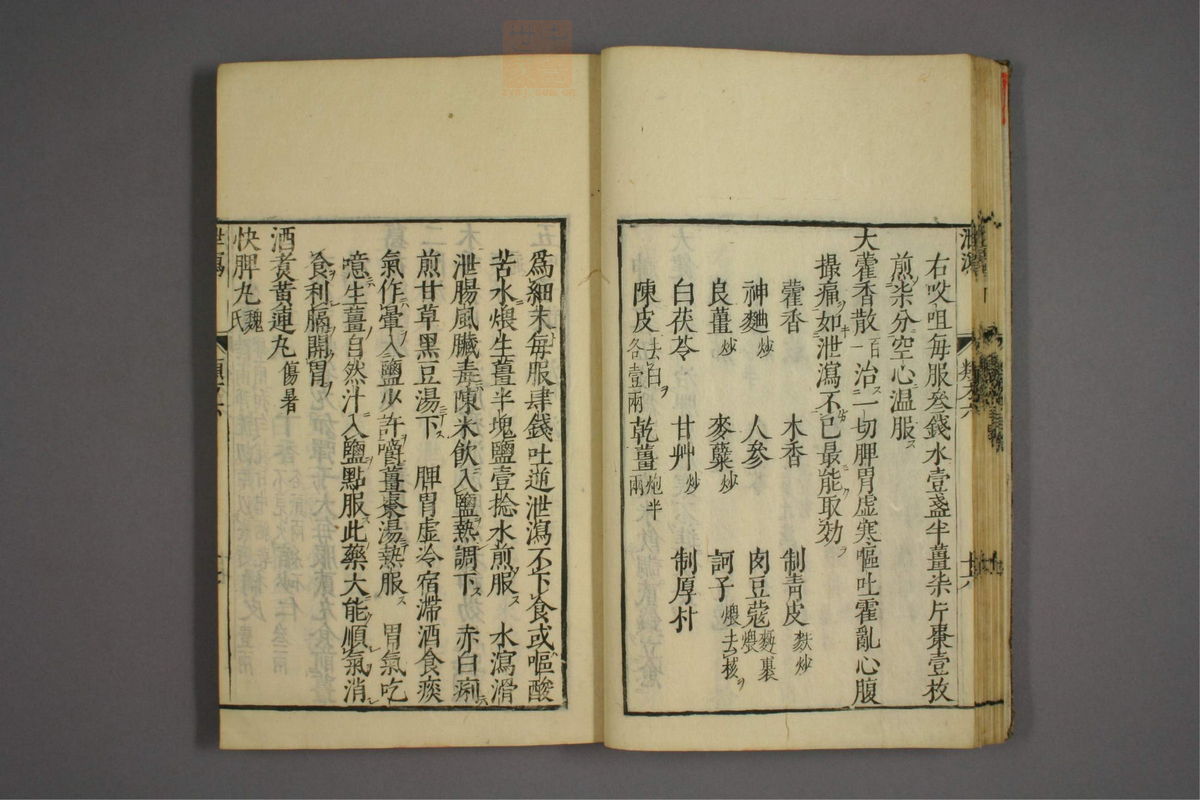 右㕮咀毎服叄錢水壹盞半薑柒片棗壹枚
煎柒分空心温服
大藿香散百一治一切脾胃虚寒嘔吐霍亂心腹
撮痛如泄瀉不已最能取効
藿香 木香 制青皮麩炒
神麯炒 人參 肉豆蔻麪裹煨
良薑炒 麥蘗炒 訶子煨去核
白茯苓 甘艸炒 制厚朴
陳皮去白各壹兩 乾薑炮半兩
爲細末毎服肆錢吐逆泄瀉不下食或嘔酸
苦水煨生薑半塊鹽壹捻水煎服 水瀉滑
泄腸風臟毒陳米飲入鹽熱調下 赤白痢
煎甘草黑豆湯下 脾胃虚冷宿滯酒食痰
氣作暈入鹽少許嚼薑棗湯熱服 胃氣吃
噫生薑自然汁入鹽點服此藥大能順氣消
食利膈開胃
酒煮黄連丸傷暑
快脾丸魏氏